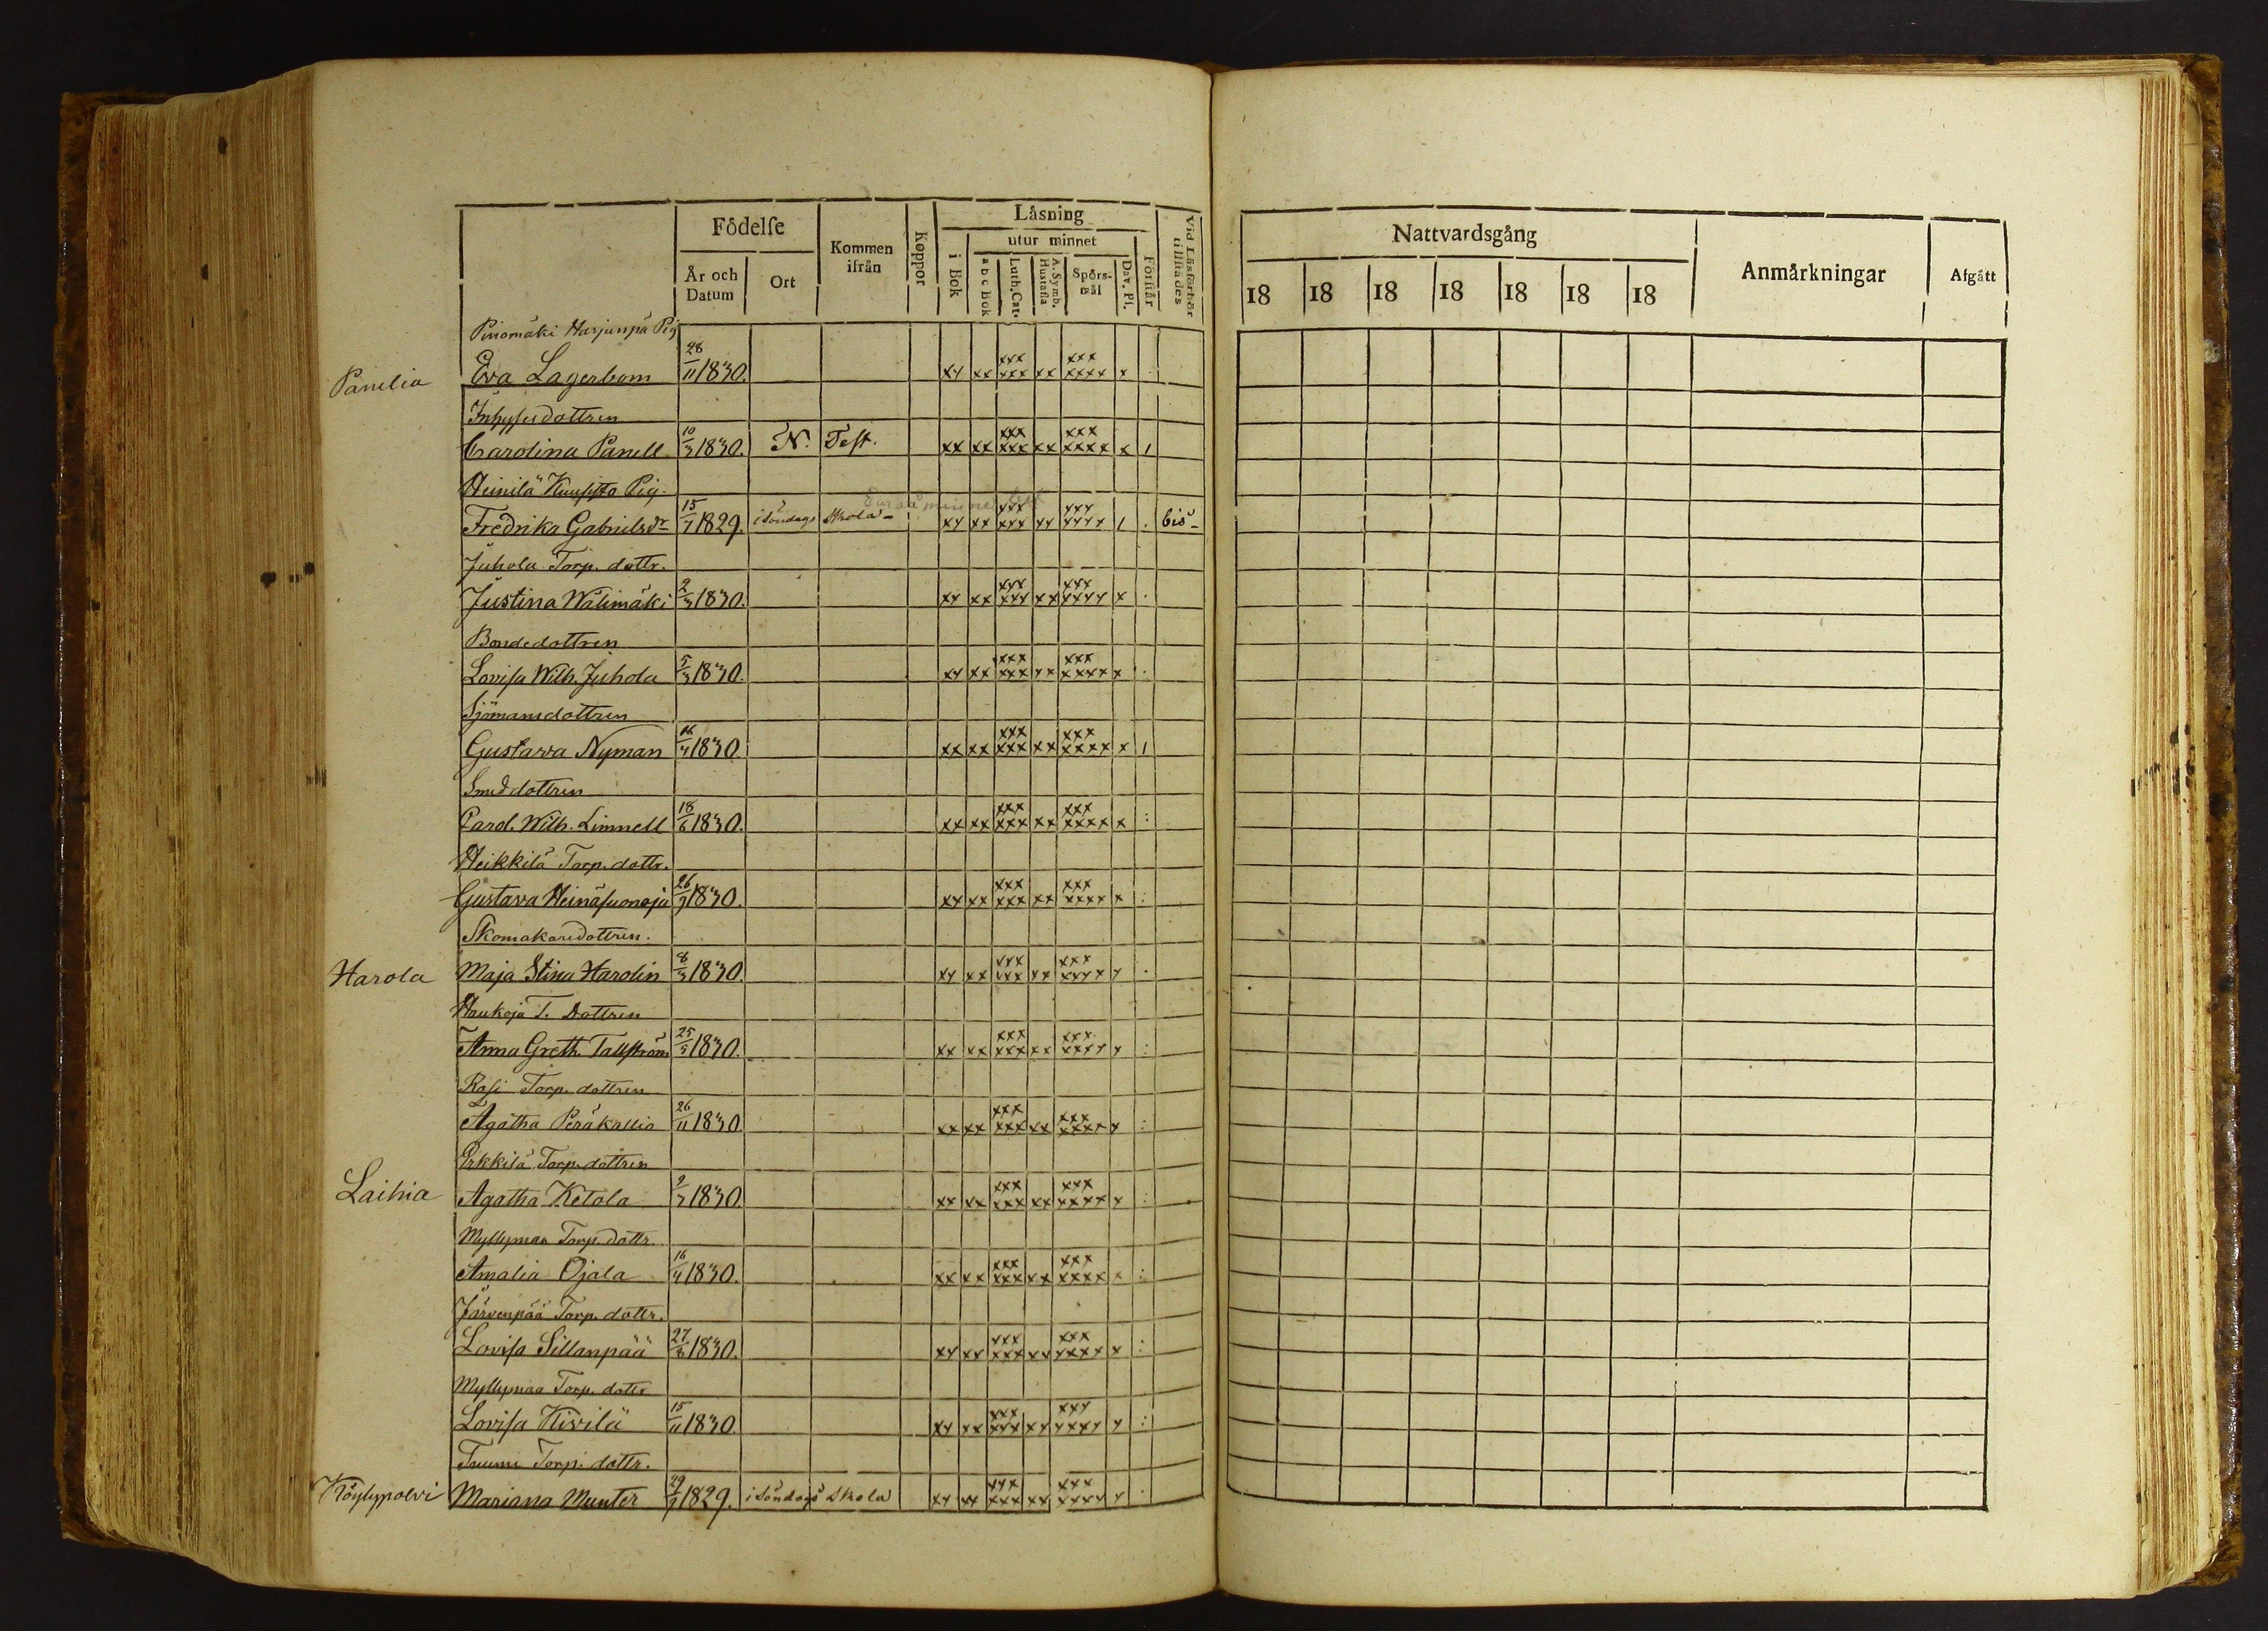 Födelse
Kommen ifrån
Koppor
Låsning
Vid Läsförhör tillstädes
utur minnet
År och Datum
Ort
i Bok
a b c Bok
Luth. Cat.
A. Symb. Hustafla
Spörs-mål
Dav. Ps.
Förstår
Nattvardsgång
Anmårkningar
Afgått
18 18 18 18 18 18 18
Pinomäki Harjunpä Pig
Panelia Eva Lagerbom 28/11 1830. xx xx xxx xxx xx xxx xxxx x
Inhyses dottren
Carolina Panell 10/3 1830. N. Test. xx xx xxx xxx xx xxx xxxx x /
Heinilä Pig.
Fredrika Gabrielsdr 15/1 1829. i Söndags skola - xx xx xxx xxx xx xxx xxxx / . bis -
Juhola Torp. dottr.
Justina Wälimäki 2/3 1830. xx xx xxx xxx xx xxx xxxx x .
Bondedottren
Lovisa Wilh. Juhola 5/3 1830. xx xx xxx xxx xx xxx xxxx x .
Sjömansdottren
Gustava Nyman 16/4 1830. xx xx xxx xxx xx xxx xxxx x /
Smeddottren
Carol. Wilh. Limnell 18/6 1830. xx xx xxx xxx xx xxx xxxx x :
Heikkilä Torp. dottr.
Gustava Heinäsuonoja 26/9 1830. xx xx xxx xxx xx xxx xxxx x :
Skomakaredottren.
Harola Maja Stina Harolin 8/3 1830. xx xx xxx xxx xx xxx xxxx x .
Haukoja T. Dottren
Anna Greth. Tallström 25/5 1830. xx xx xxx xxx xx xxx xxxx x :
Rasi Torp. dottren
Agatha Peräkallio 26/11 1830. xx xx xxx xxx xx xxx xxxx x :
Erkkilä Torp. dottren
Laihia Agatha Ketola 9/3 1830. xx xx xxx xxx xx xxx xxxx x :
Myllymaa Torp. dottr.
Amalia Ojala 16/4 1830. xx xx xxx xxx xx xxx xxxx x :
Järvenpää Torp. dottr.
Lovisa Sillanpää 27/8 1830. xx xx xxx xxx xx xxx xxxx x :
Myllymaa Torp. dottr
Lovisa Hivilä 15/11 1830. xx xx xxx xxx xx xxx xxxx x :
Tuumi Torp. dottr.
Köylypolvi Mariana Munter 29/9 1829. i Söndags Skola xx xx xxx xxx xx xxx xxxx x .